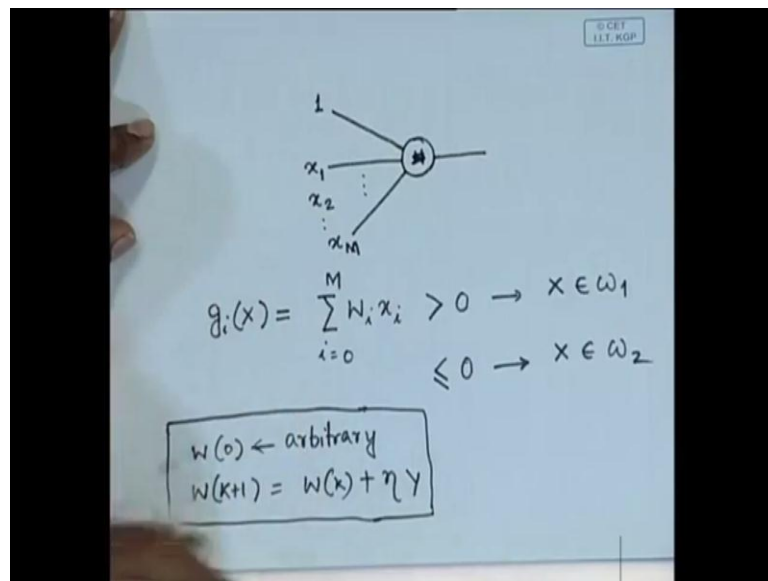 © CET
I.I.T. KGP
1
x₁
x₂
⋮
x_M
g_i(X) = ∑_{i=0}^{M} W_i x_i > 0 → X ∈ ω₁
≤ 0 → X ∈ ω₂
W(0) ← arbitrary
W(K+1) = W(K) + η Y